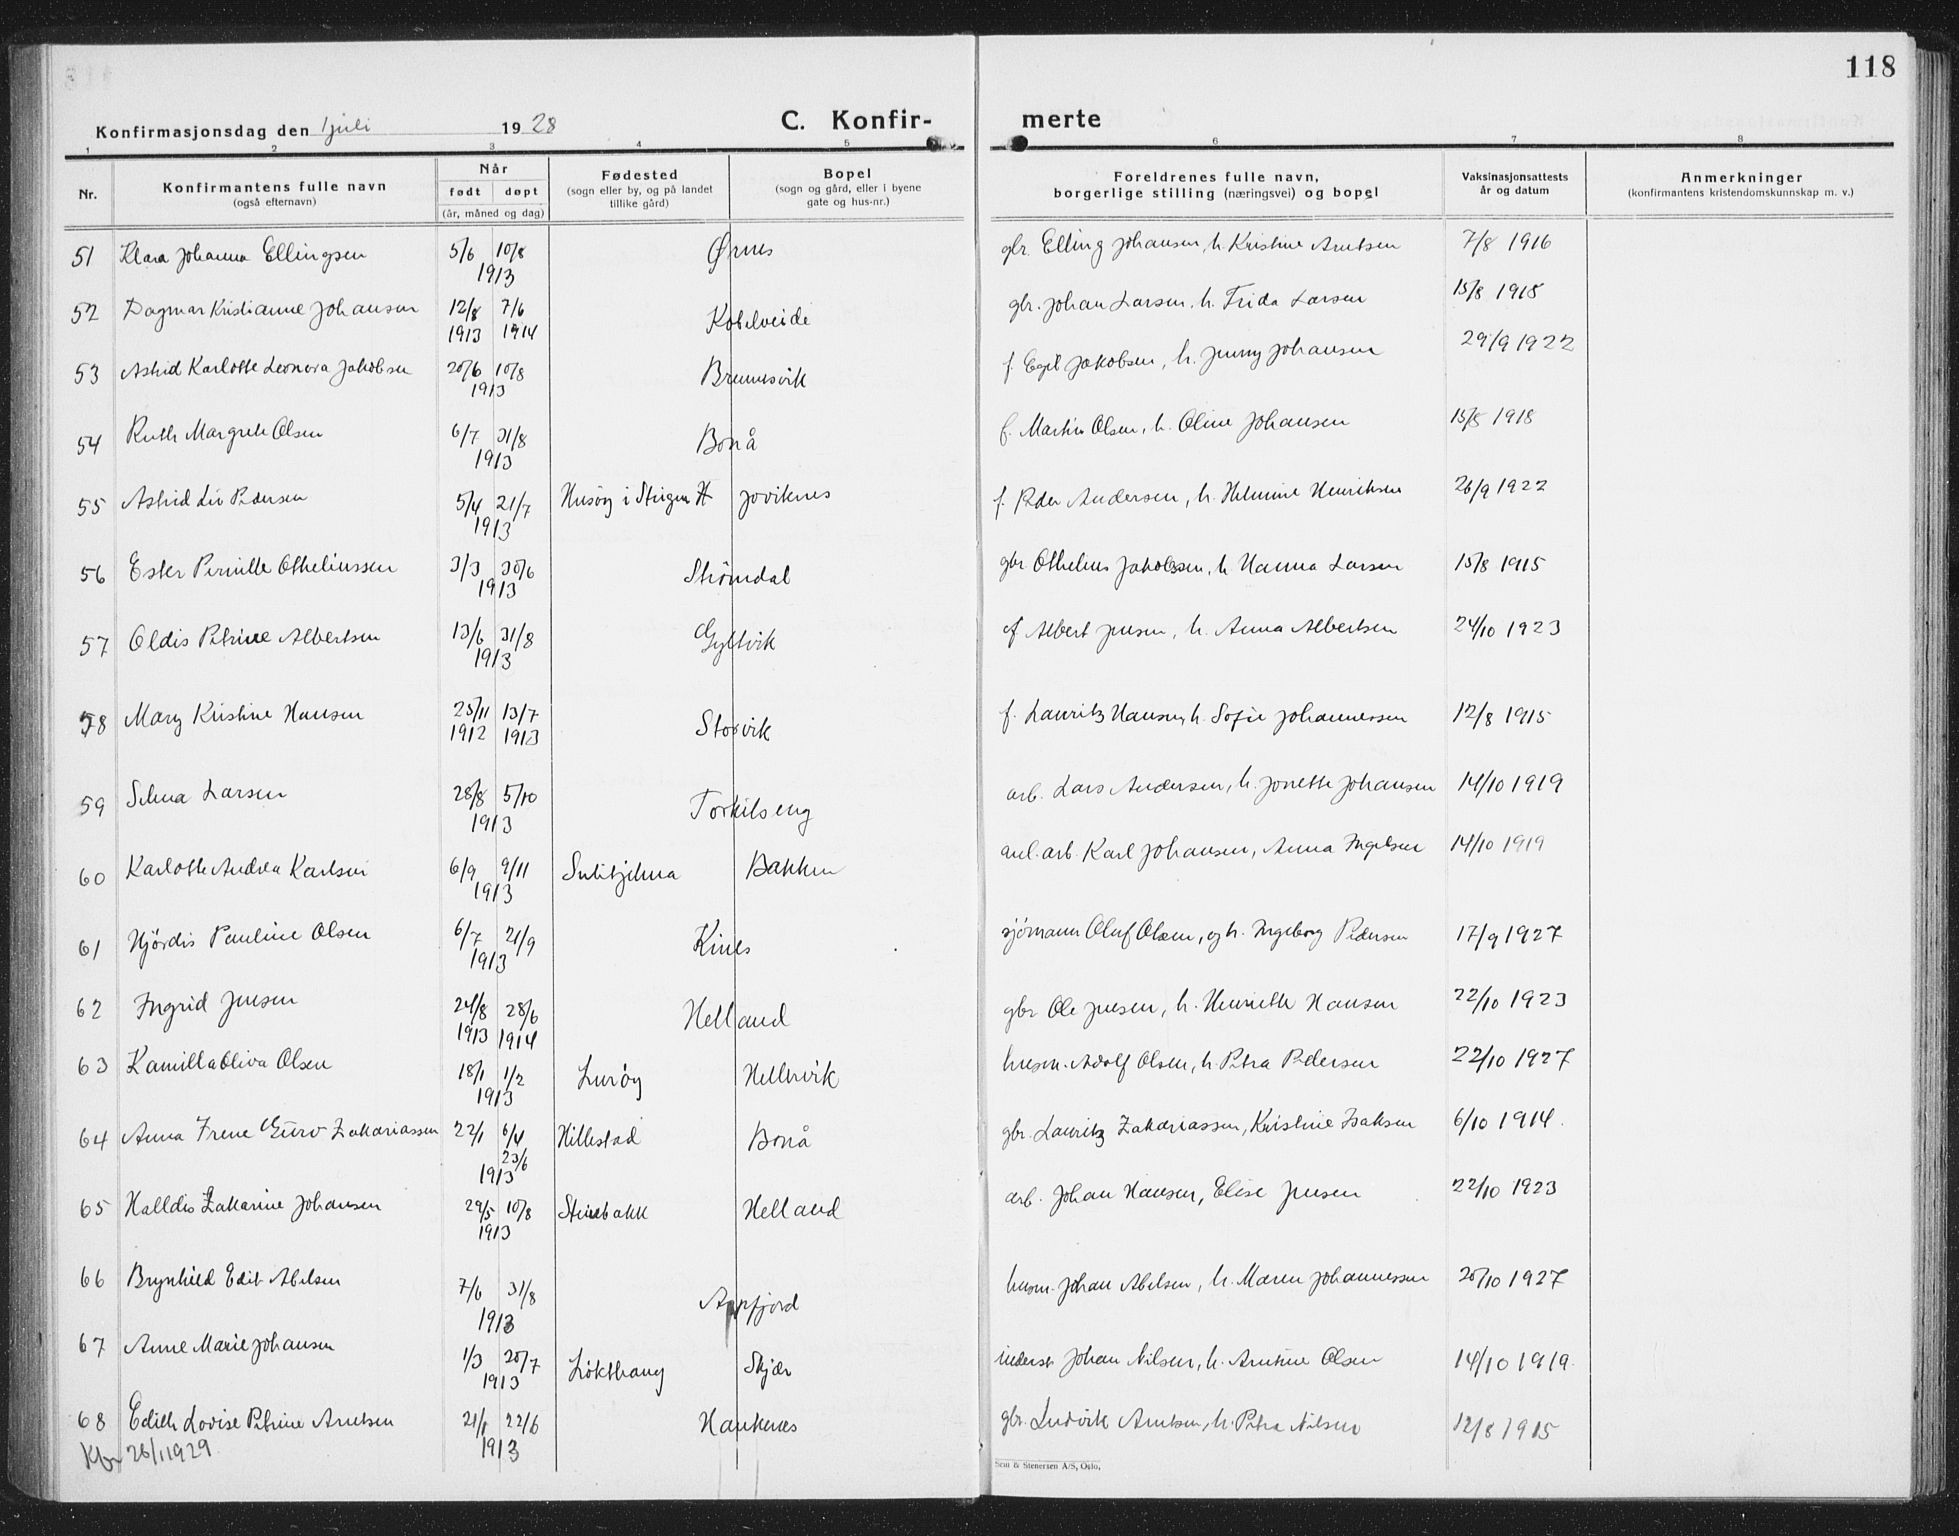 118
Konfirmasjonsdag den 1 juli 1928 C. Konfir- merte
1 2 3 4 5 6 7 8
Nr. Konfirmantens fulle navn (også efternavn) Når født døpt (år, måned og dag) Fødested (sogn eller by, og på landet tillike gård) Bopel (sogn og gård, eller i byene gate og hus-nr.) Foreldrenes fulle navn, borgerlige stilling (næringsvei) og bopel Vaksinasjonsattests år og datum Anmerkninger (konfirmantens kristendomskunnskap m. v.)
51 Klara Johanna Ellingsen 5/6 10/8 1913 Ørnes gbr. Elling Johansen, h. Kristine Arntsen 7/8 1916
52 Dagmar Kristianne Johansen 12/8 1913 7/6 1914 Kobelveide gbr. Johan Larsen, h. Frida Larsen 15/8 1918
53 Astrid Karlotte Leonora Jakobsen 20/6 10/8 1913 Brennesvik f. Egil Jakobsen, h. Jenny Johansen 29/9 1922
54 Ruth Margrete Olsen 6/7 31/8 1913 Bonå f. Martin Olsen, h. Oline Johansen 15/8 1918
55 Astrid Liv Pedersen 5/4 21/7 1913 Husøy i Steigen Hjoviknes f. Peder Andersen, h. Helmine Henriksen 26/9 1922
56 Ester Pernille Otheliussen 3/3 30/6 1913 Strømdal gbr Othelius Jakobsen, h Hanna Larsen 15/8 1915
57 Oldis Petrine Albertsen 13/6 31/8 1913 Gyltvik f Albert Jensen, h. Anna Albertsen 24/10 1923
58 Mary Kristine Hansen 25/11 1912 13/7 1913 Storvik f. Lauritz Hansen, h. Sofie Johannessen 12/8 1915
59 Selma Larsen 28/8 5/10 1913 Torkilseng arb. Lars Andersen, h. Jonette Johansen 14/10 1919
60 Karlotte Andrea Karlsen 6/9 9/11 1913 Sulitjelma Bakken anl.arb. Karl Johansen, Anna Ingelsen 14/10 1919
61 Hjørdis Pauline Olsen 6/7 21/9 1913 Kines sjømann Oluf Olsen, og h. Ingeborg Pedersen 17/9 1927
62 Ingrid Jensen 24/8 1913 28/6 1914 Helland gbr Ole Jensen, h. Henriette Hansen 22/10 1923
63 Kamilla Oliva Olsen 18/1 1/2 1913 Lurøy Hellevik husm. Adolf Olsen, h. Petra Pedersen 22/10 1927
64 Anna Irene Guro Zakariassen 22/1 6/4 23/6 1913 Hillestad Bonå gbr. Lauritz Zakariassen, Kristine Isaksen 6/10 1914.
65 Halldis Zakarine Johansen 29/5 10/8 1913 Steinbakk Helland arb. Johan Hansen, Elise Jensen 22/10 1923
66 Brynhild Edit Abelsen 7/6 31/8 1913 Appfjord husm. Johan Abelsen, h. Maren Johannessen 20/10 1927
67 Anne Marie Johansen 1/3 20/7 1913 Løkthaug Skjær inderst Johan Nilsen, h. Arntine Olsen 14/10 1919.
68 Edith Lovise Petrine Arntsen 21/1 22/6 1913 Haukenes gbr. Ludvik Arntsen, h. Petra Nilsen 12/8 1915
26/1 1929
Sem & Stenersen A/S, Oslo.